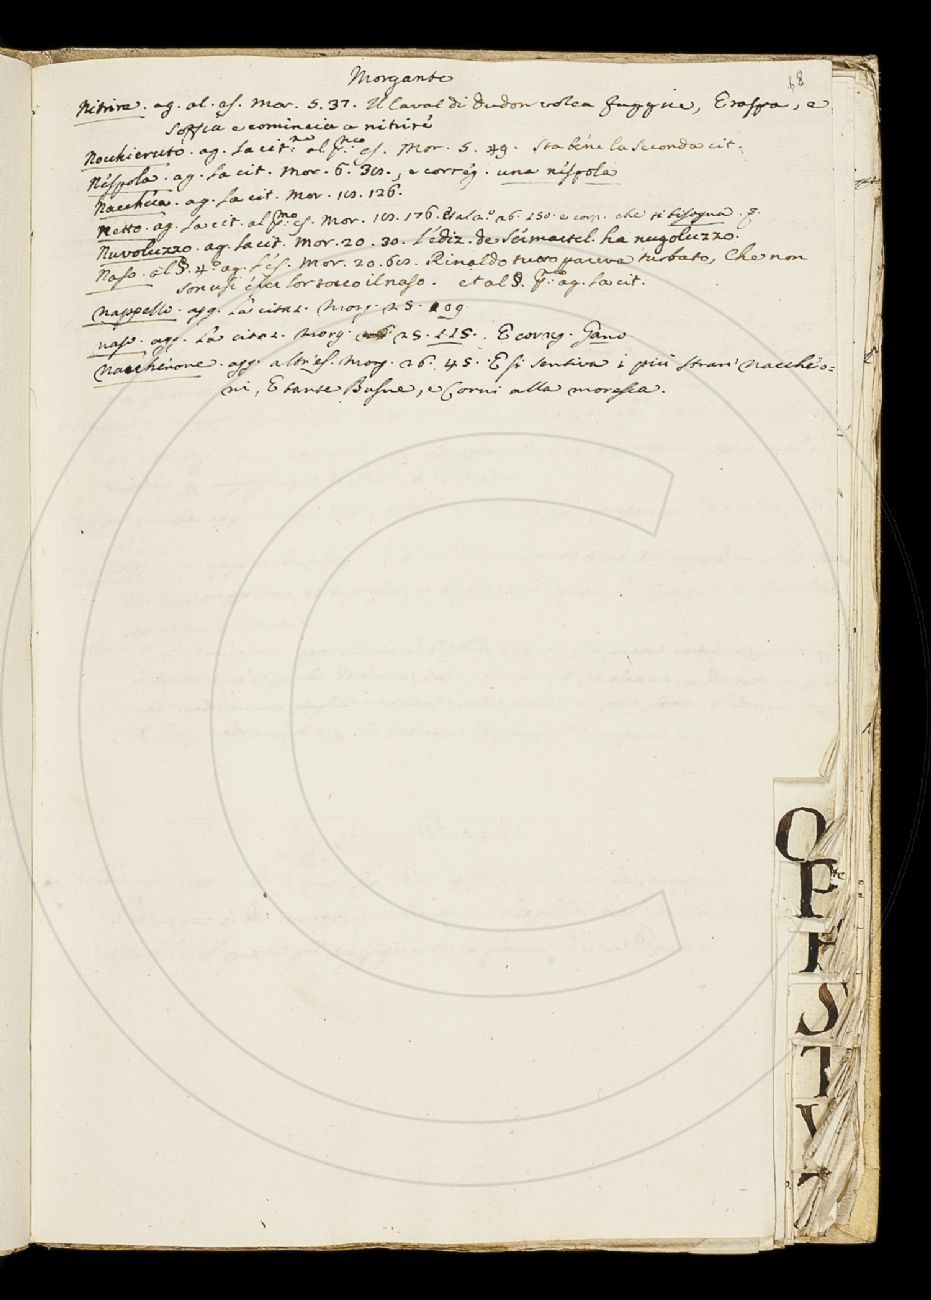 Morgante
68
Nitrire . ag. al. es. Mor. 5. 37. Il caval di Dudon volea fuggire, E raspa, e
soffia e comincia a nitrire
Nocchieruto . ag. la cit.ne al p.mo es. Mor. 5. 49. sta bene la seconda cit.
Nespola . ag. la cit. Mor. 6. 30., e correg. una nespola
Nacchera . ag. la cit. Mor. 10. 126.
Netto . ag. la cit. al p.mo es. Mor. 10. 176. Et al 2.o 26. 150. e corr. che ti bisogna
Nuvoluzzo . ag. la cit. Mor. 20. 30. L'ediz. de' Sermartel. ha nugoluzzo.
Naso . al §. 4.o ag. l'es. Mor. 20. 60. Rinaldo tutto pareva turbato, Che non
son usi esser lor tocco il naso . et al §. p.mo ag. la cit.
Nappello . agg. la citaz. Morg. 25. 109.
naso . agg. la citaz. Morg. 25. 115. E correg. Gano
Nacchérone . agg. altr'es. Morg. 26. 45. E si sentiva i più stran' nacchero=
ni, E tante Busne, e Corni alla moresca.
O
P
R
S
T
V
Z